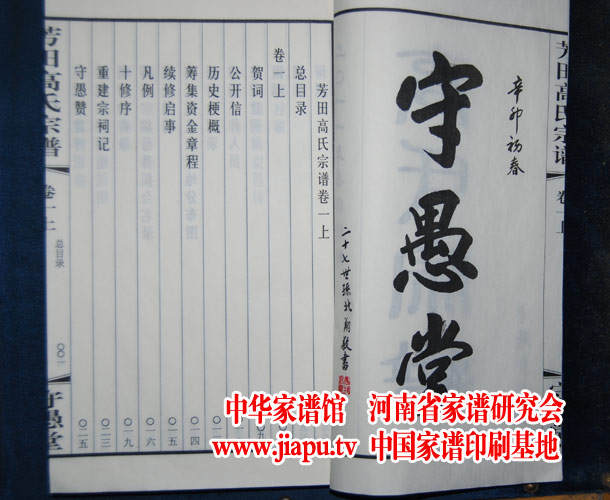 芳田高氏宗谱
卷一上
守愚堂
辛卯初春
守愚堂
二十七世孙北翔敬书
芳田高氏宗谱卷一上
总目录
卷一上
贺词
公开信
历史梗概
筹集资金章程 〇一四
续修启事 〇一五
凡例 〇一六
十修序 〇一九
重建宗祠记 〇二三
守愚赞 〇二五
芳田高氏宗谱
卷一上
总目录
〇〇一
守愚堂
中华家谱馆 河南省家谱研究会
www.jiapu.tv 中国家谱印刷基地